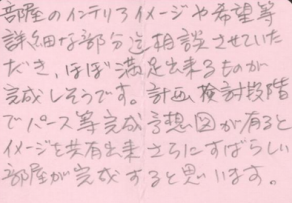 部屋のインテリアイメージや希望等
詳細な部分迄相談させていた
だき、ほぼ満足出来るものが
完成しそうです。計画、検討段階
でパース等完成予想図が有ると
イメージを共有出来さらにすばらしい
部屋が完成すると思います。